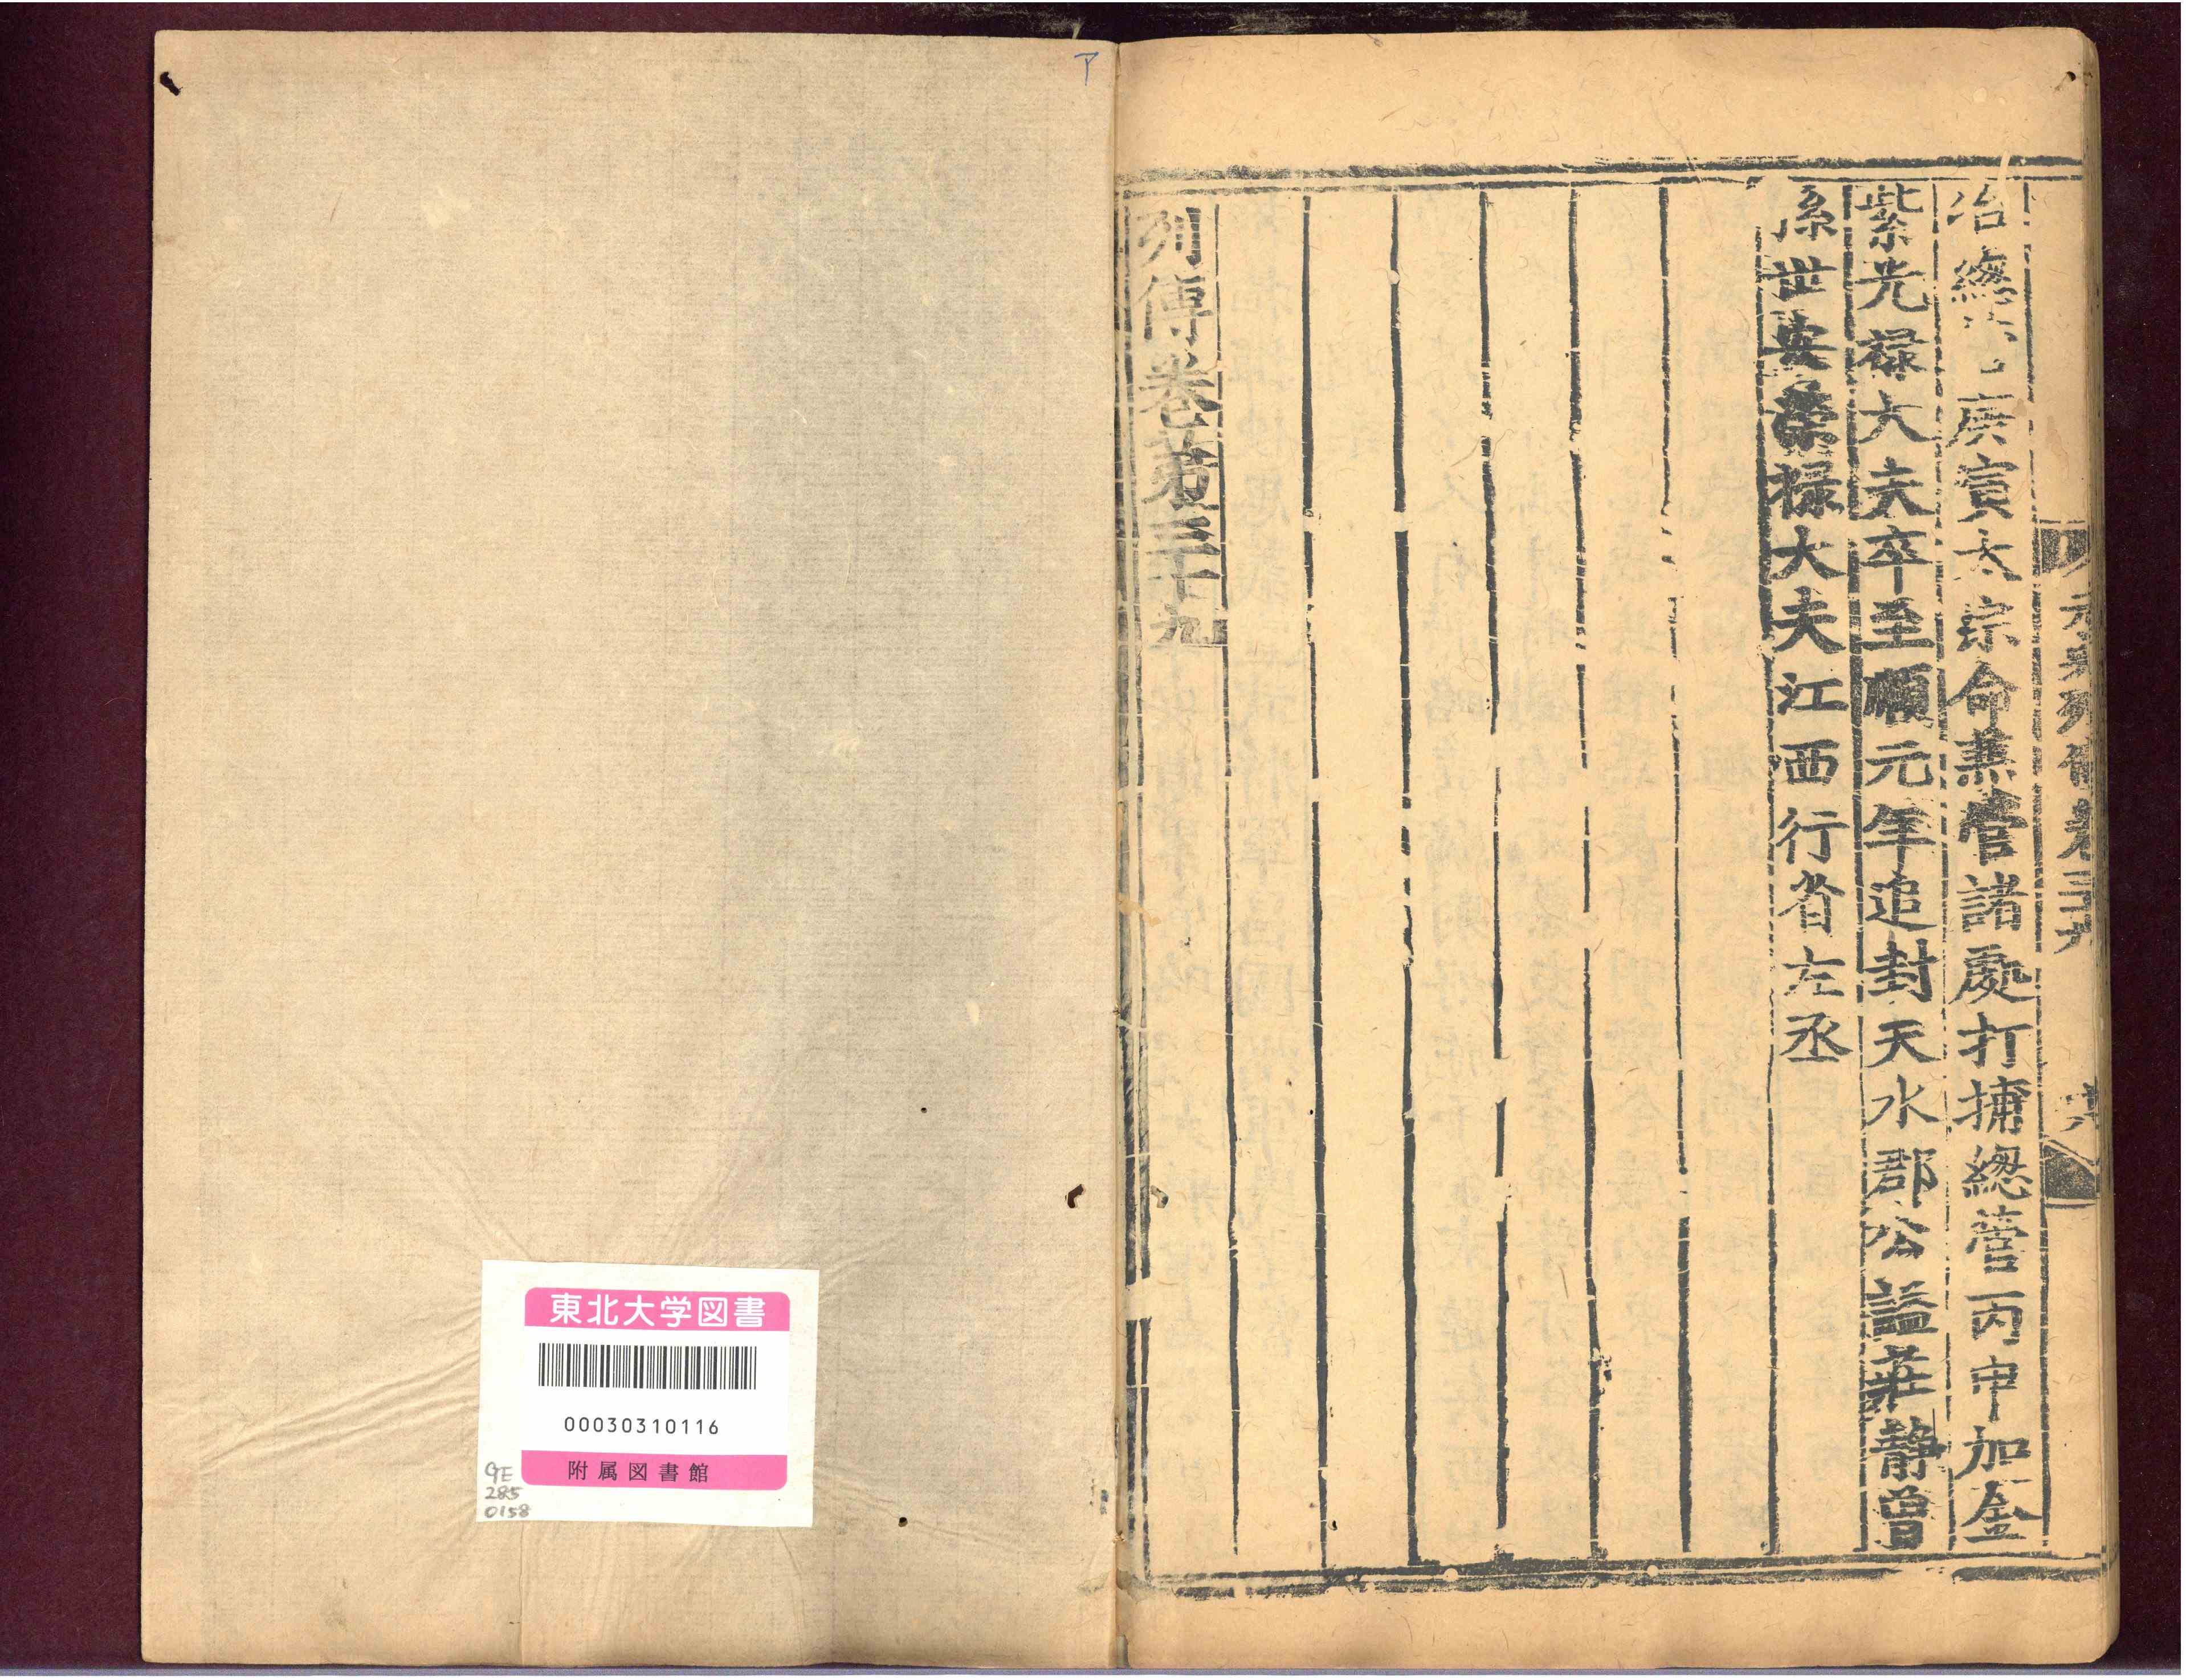 元史列傳卷三十九
十六
冶總管庚寅太宗命兼管諸處打捕總管丙申加金
紫光祿大夫卒至順元年追封天水郡公諡莊靜曾
孫世安榮祿大夫江西行省左丞
列傳卷第三十九
ア
東北大学図書
00030310116
附属図書館
9E
285
0158